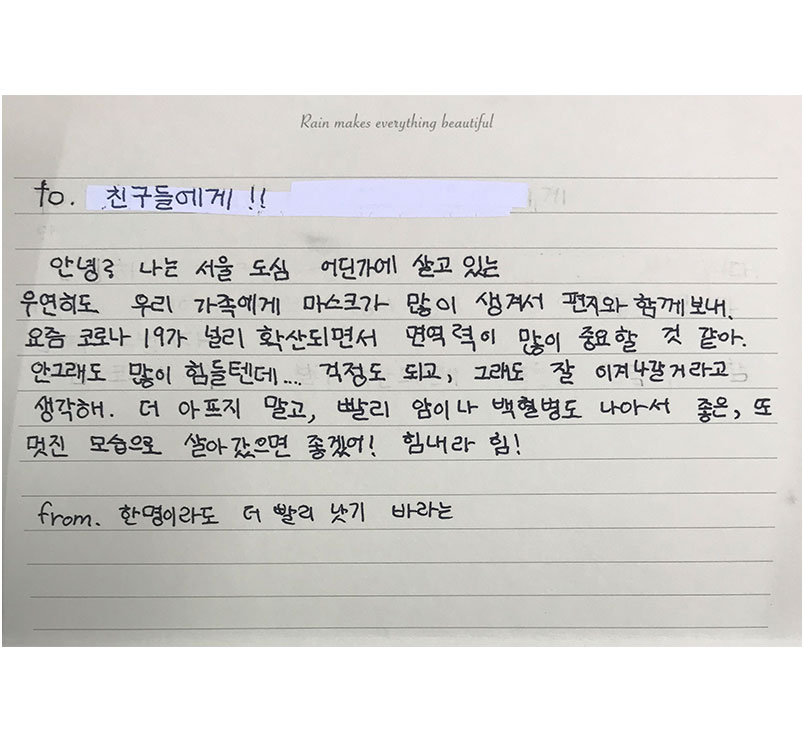 Rain makes everything beautiful
to. 친구들에게 !!
안녕? 나는 서울 도심 어딘가에 살고 있는
우연히도 우리 가족에게 마스크가 많이 생겨서 편지와 함께 보내.
요즘 코로나 19가 널리 확산되면서 면역력이 많이 중요할 것 같아.
안그래도 많이 힘들텐데.... 걱정도 되고, 그래도 잘 이겨낼거라고
생각해. 더 아프지 말고, 빨리 암이나 백혈병도 나아서 좋은, 또
멋진 모습으로 살아갔으면 좋겠어! 힘내라 힘!
from. 한명이라도 더 빨리 낫기 바라는